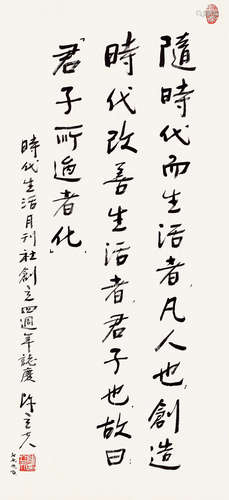 隨時代而生活者，凡人也，創造
時代改善生活者，君子也，故曰：
「君子所過者化」
時代生活月刊社創立四週年誌慶
陳立夫